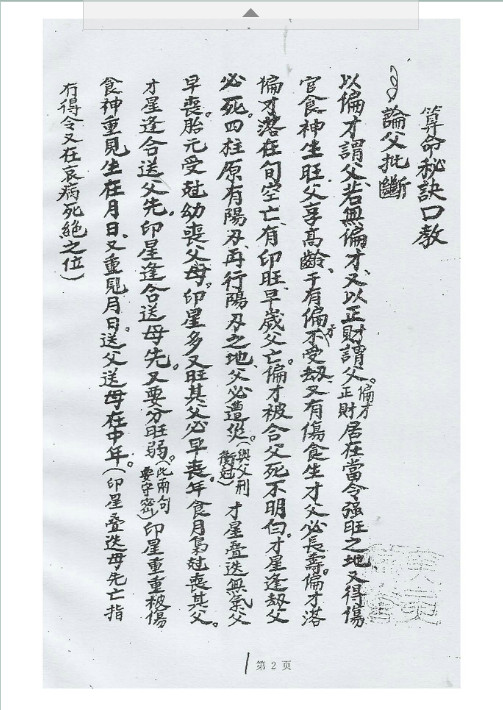 算命秘訣口教
論父批斷
以偏才謂父若無偏才又以正財謂父。偏才正財居在當令強旺之地又得傷
官食神生旺父享高齡、干有偏才不受劫又有傷食生才父必長壽。偏才落
偏才落在旬空亡有印旺早歲父亡。偏才被合父死不明白。才星逢劫父
必死。四柱原有陽刃再行陽刃之地父必遭災(與父刑衝尅)才星叠迭無氣父
早喪。胎元受尅幼喪父母。印星多又旺其父必早喪。年食月梟尅喪其父。
才星逢合送父先。印星逢合送母先。又要分旺弱。(此兩句要守密)印星重重被傷
食神重見生在月日。又重見月日。送父送母在中年。(印星叠迭母先亡指
有得令又在衰病死絕之位)
1
第 2 页